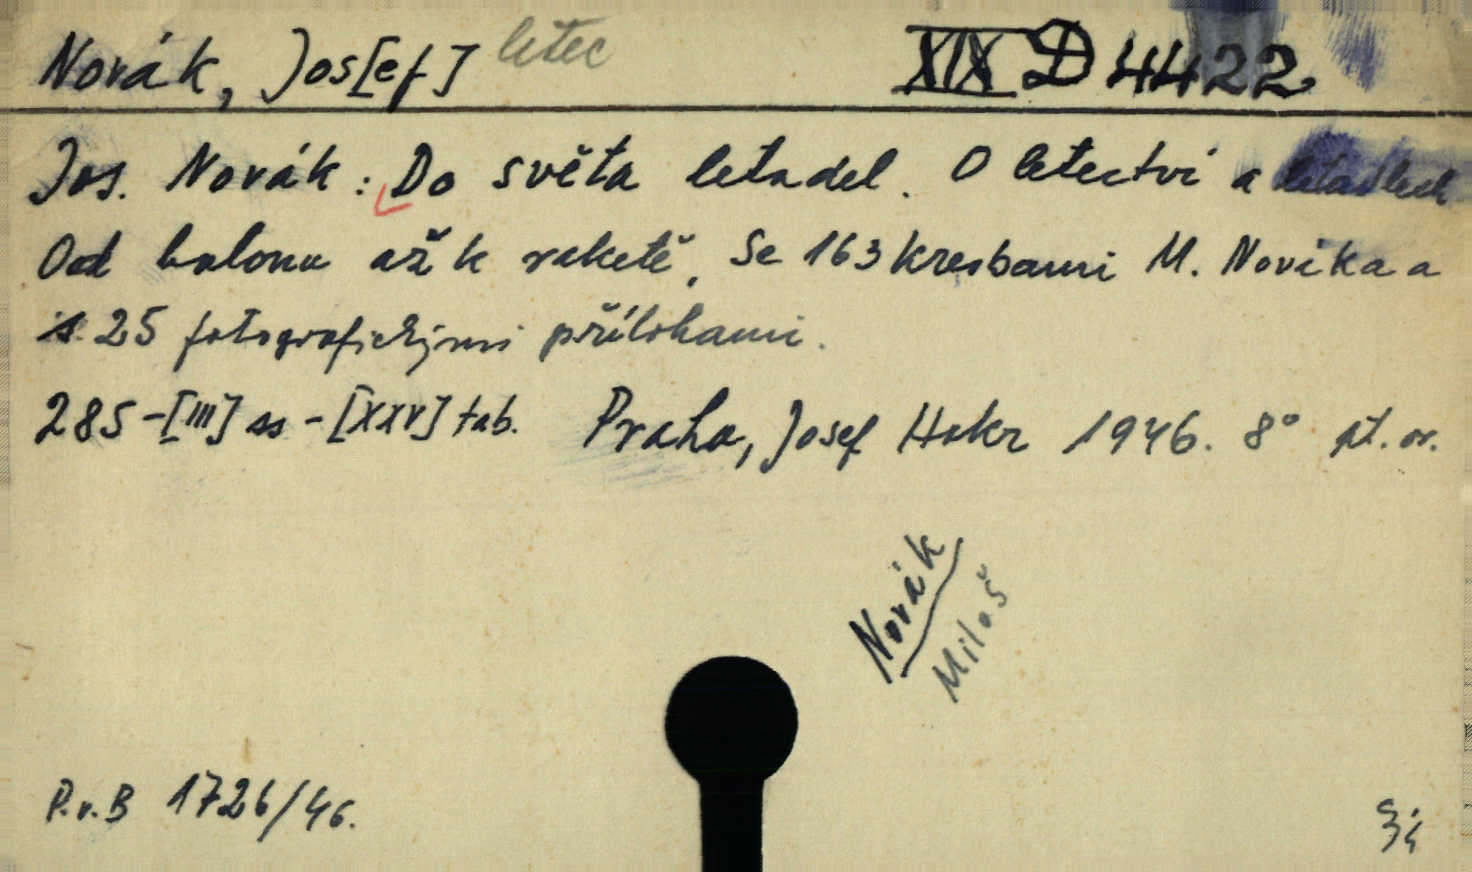 Novák, Jos[ef] letec XIX D 4422
Jos. Novák: Do světa letadel. O letectví a letadlech
Od balonu až k raketě. Se 163 kresbami M. Nováka a
s 25 fotografickými přílohami.
285-[III] ss - [XXV] tab. Praha, Josef Hokr 1946. 8° pt. or.
Novák
Miloš
P.v.B 1726/46.